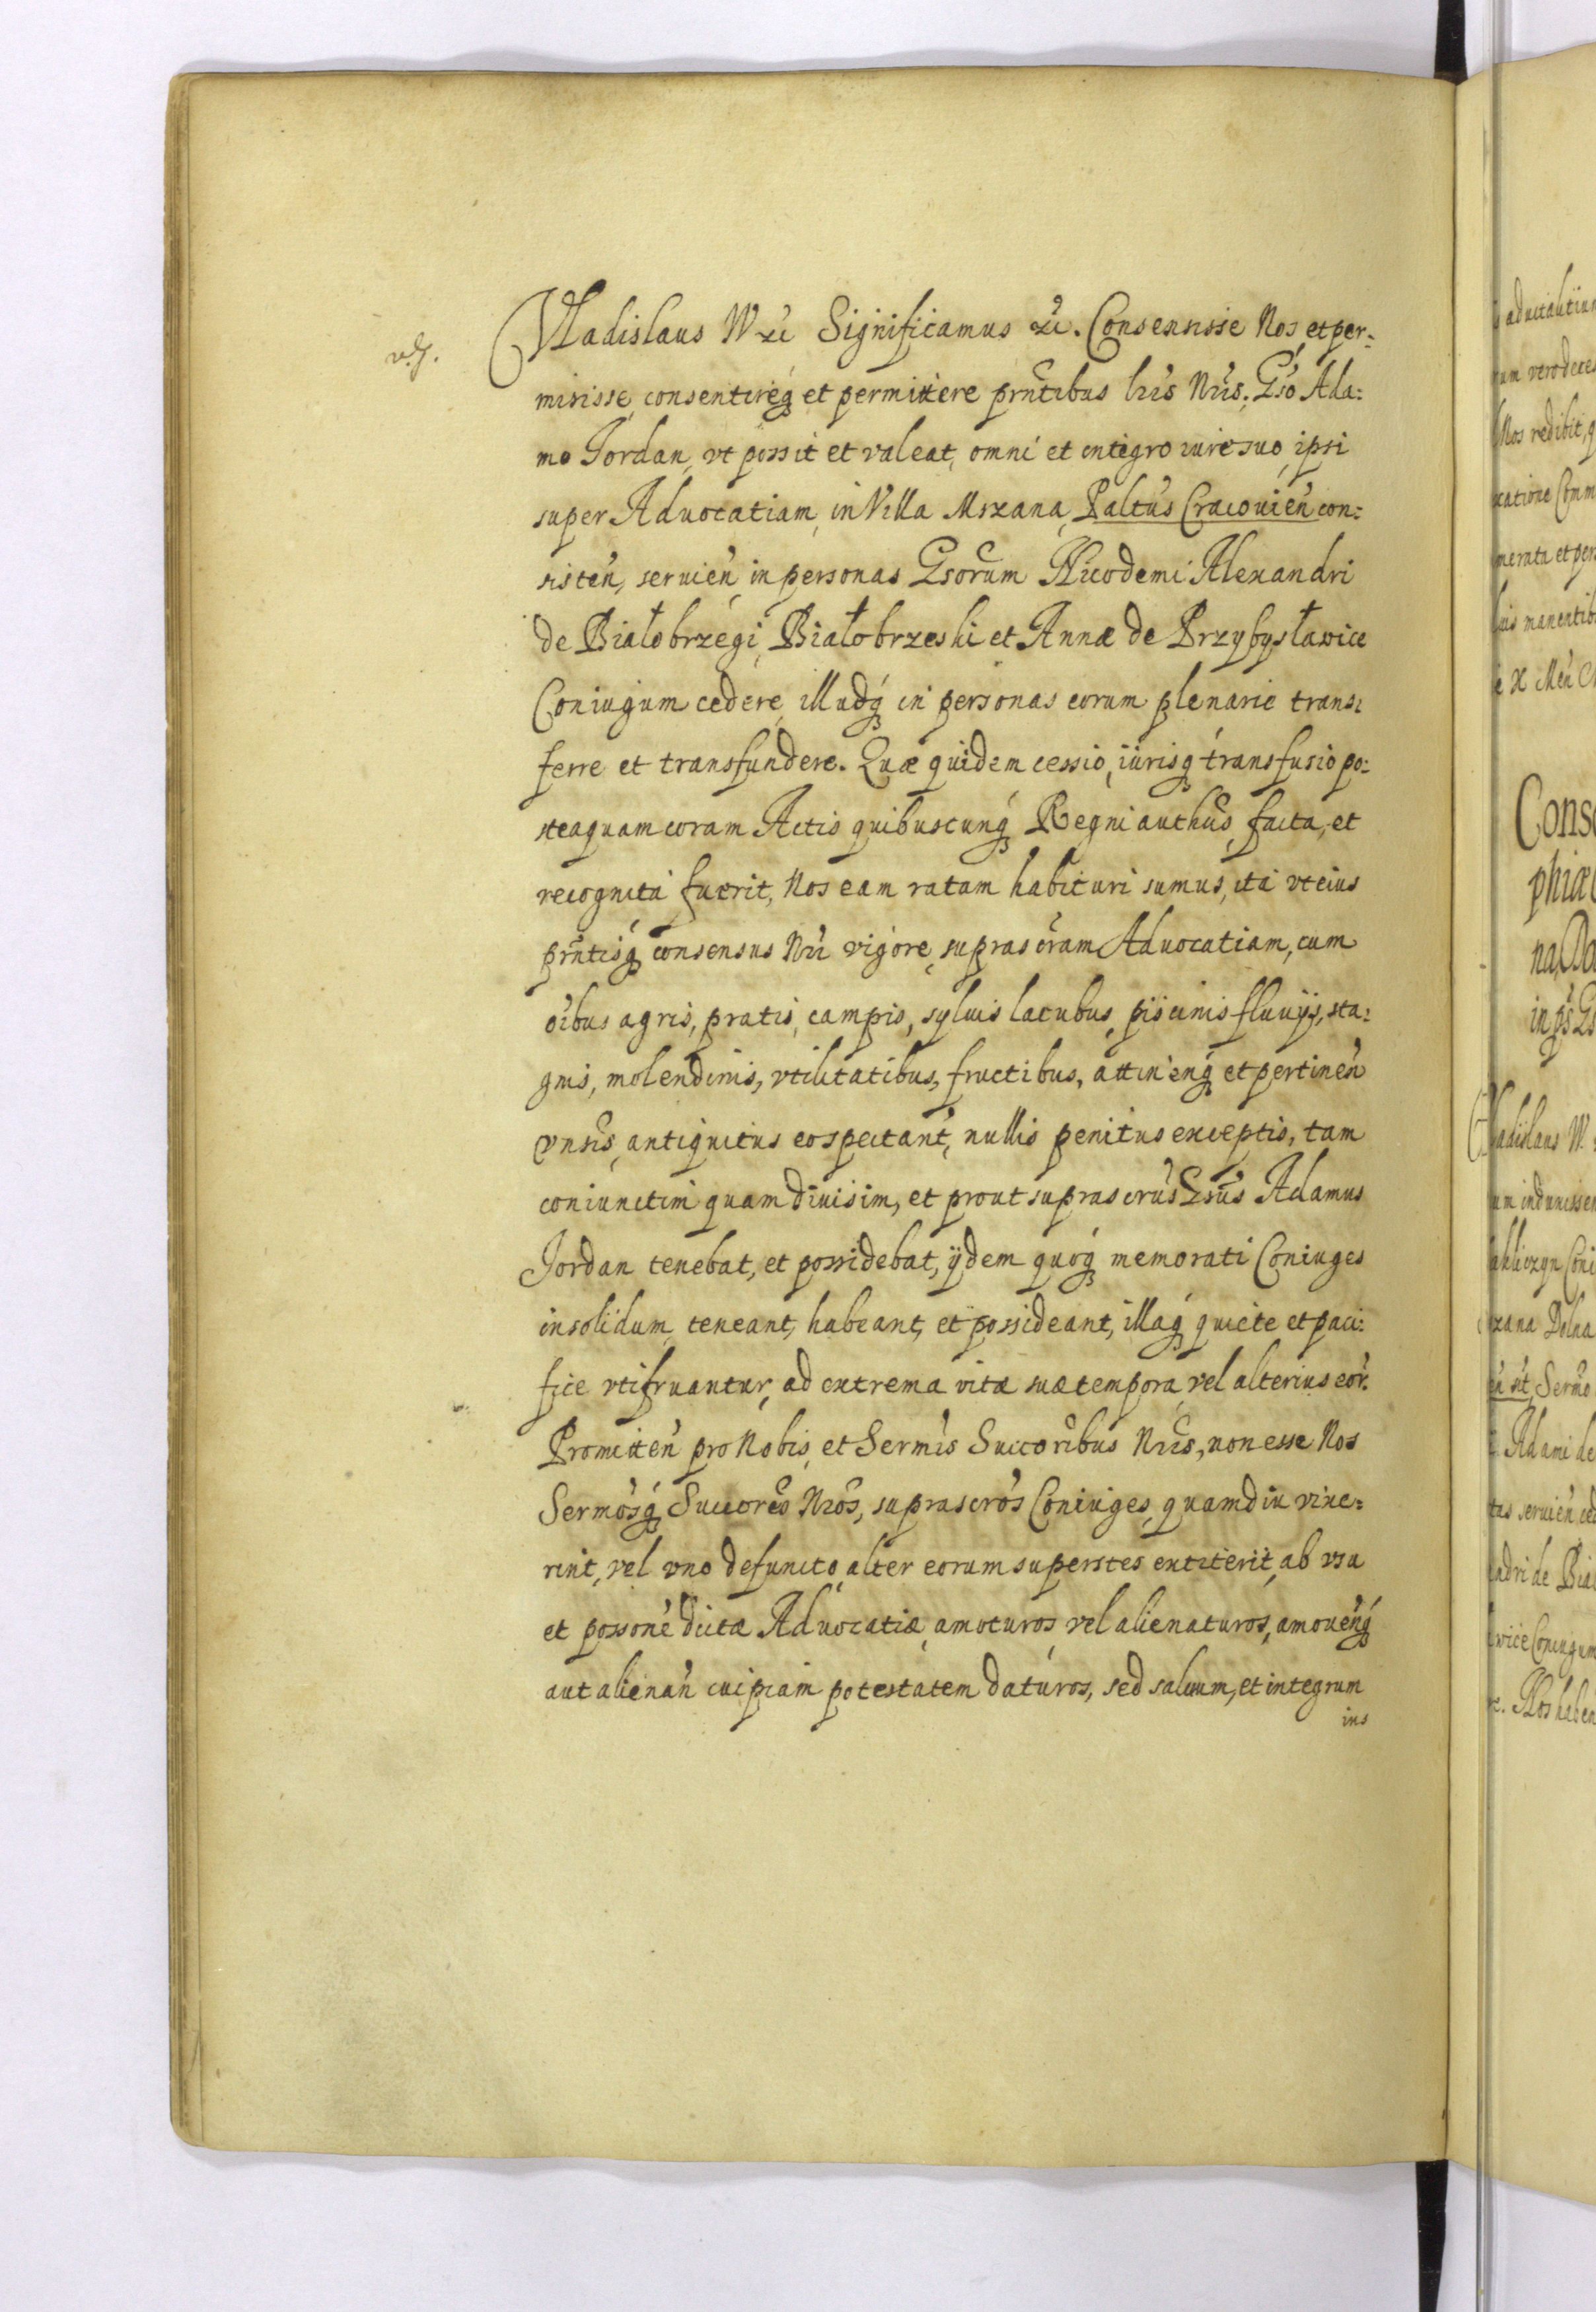 Vladislaus W etc Significamus etc. Consensisse Nos, et per:
misisse, consentireq₃ et permittere prntibus lris Nris. Gso Ada:
mo Jordan, vt possit et valeat, omni et integro iure suo, ipsi
super Aduocatiam, in Villa Mszana, Paltus Cracouien con:
sisten, seruien, in personas Gsorum Nicodemi Alexandri
de Białobrzegi, Białobrzeski et Annæ de Przybysławice
Coniugum cedere, illudq₃ in personas eorum plenarie trans:
ferre et transfundere. Quæ quidem cessio, iurisq₃ transfusio po:
steaquam coram Actis quibuscunq₃ Regni authcis, facta, et
recognita fuerit, Nos eam ratam habituri sumus, ita vt eius
prntisq₃ consensus Nri vigore, suprascram Aduocatiam, cum
oibus agris, pratis, campis, syluis lacubus, piscinis fluuijs, sta:
gnis, molendinis, vtilitatibus, fructibus, attinenq₃ et pertinen
vnsis, antiquitus eo spectant, nullis penitus exceptis, tam
coniunctim quam diuisim, et prout suprascrus Gsus Adamus
Jordan tenebat, et possidebat, ijdem quoq₃ memorati Coniuges
in solidum, teneant, habeant, et possideant, illaq₃ quiete et paci:
fice vtifruantur, ad extrema vitæ suæ tempora, vel alterius eor.
Promitten pro Nobis, et Sermis Succoribus Nris, non esse Nos
Sermosq₃ Succores Nros, suprascros Coniuges, quamdiu vixe:
rint, vel vno defuncto, alter eorum superstes extiterit, ab vsu
et possone dictæ Aduocatiæ, amoturos, vel alienaturos, amouenq₃
aut alienan cuipiam potestatem daturos, sed saluum, et integrum
ius
ad vitalitium
rum vero deces
Nos redibit, q
catione Comm
merata et per
uis manentib
Conse
phiæ
na, Do
in ps Gs
Vladislaus W.
um induxissem
Coni
zana Dolna
en sit, Sermo
Adami de
tas seruien ced
adri de Bia
wice Coniugum
re. Nos haben